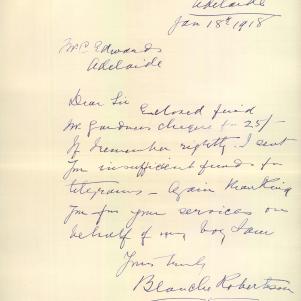 Adelaide
Jan 18th 1918
Mr C Edwards
Adelaide
Dear Sir Enclosed find
Mr Gardners cheque for 25/-
If I remember rightly I sent
you insufficient funds for
telegrams - Again thanking
you for your services on
behalf of my boy I am
Yours truly
Blanche Robertson